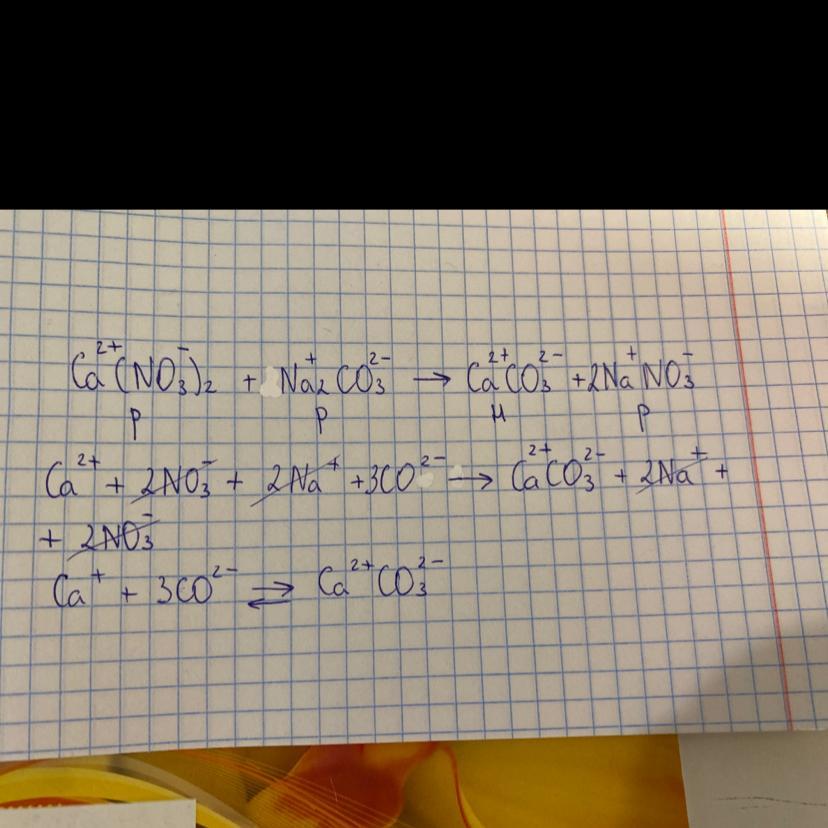 Ca²⁺(NO₃⁻)₂ + Na₂⁺CO₃²⁻ → Ca²⁺CO₃²⁻ + 2Na⁺NO₃⁻
р р н р
Ca²⁺ + 2NO₃⁻ + 2Na⁺ + 3CO²⁻ → Ca²⁺CO₃²⁻ + 2Na⁺ +
+ 2NO₃⁻
Ca⁺ + 3CO²⁻ ⇌ Ca²⁺CO₃²⁻